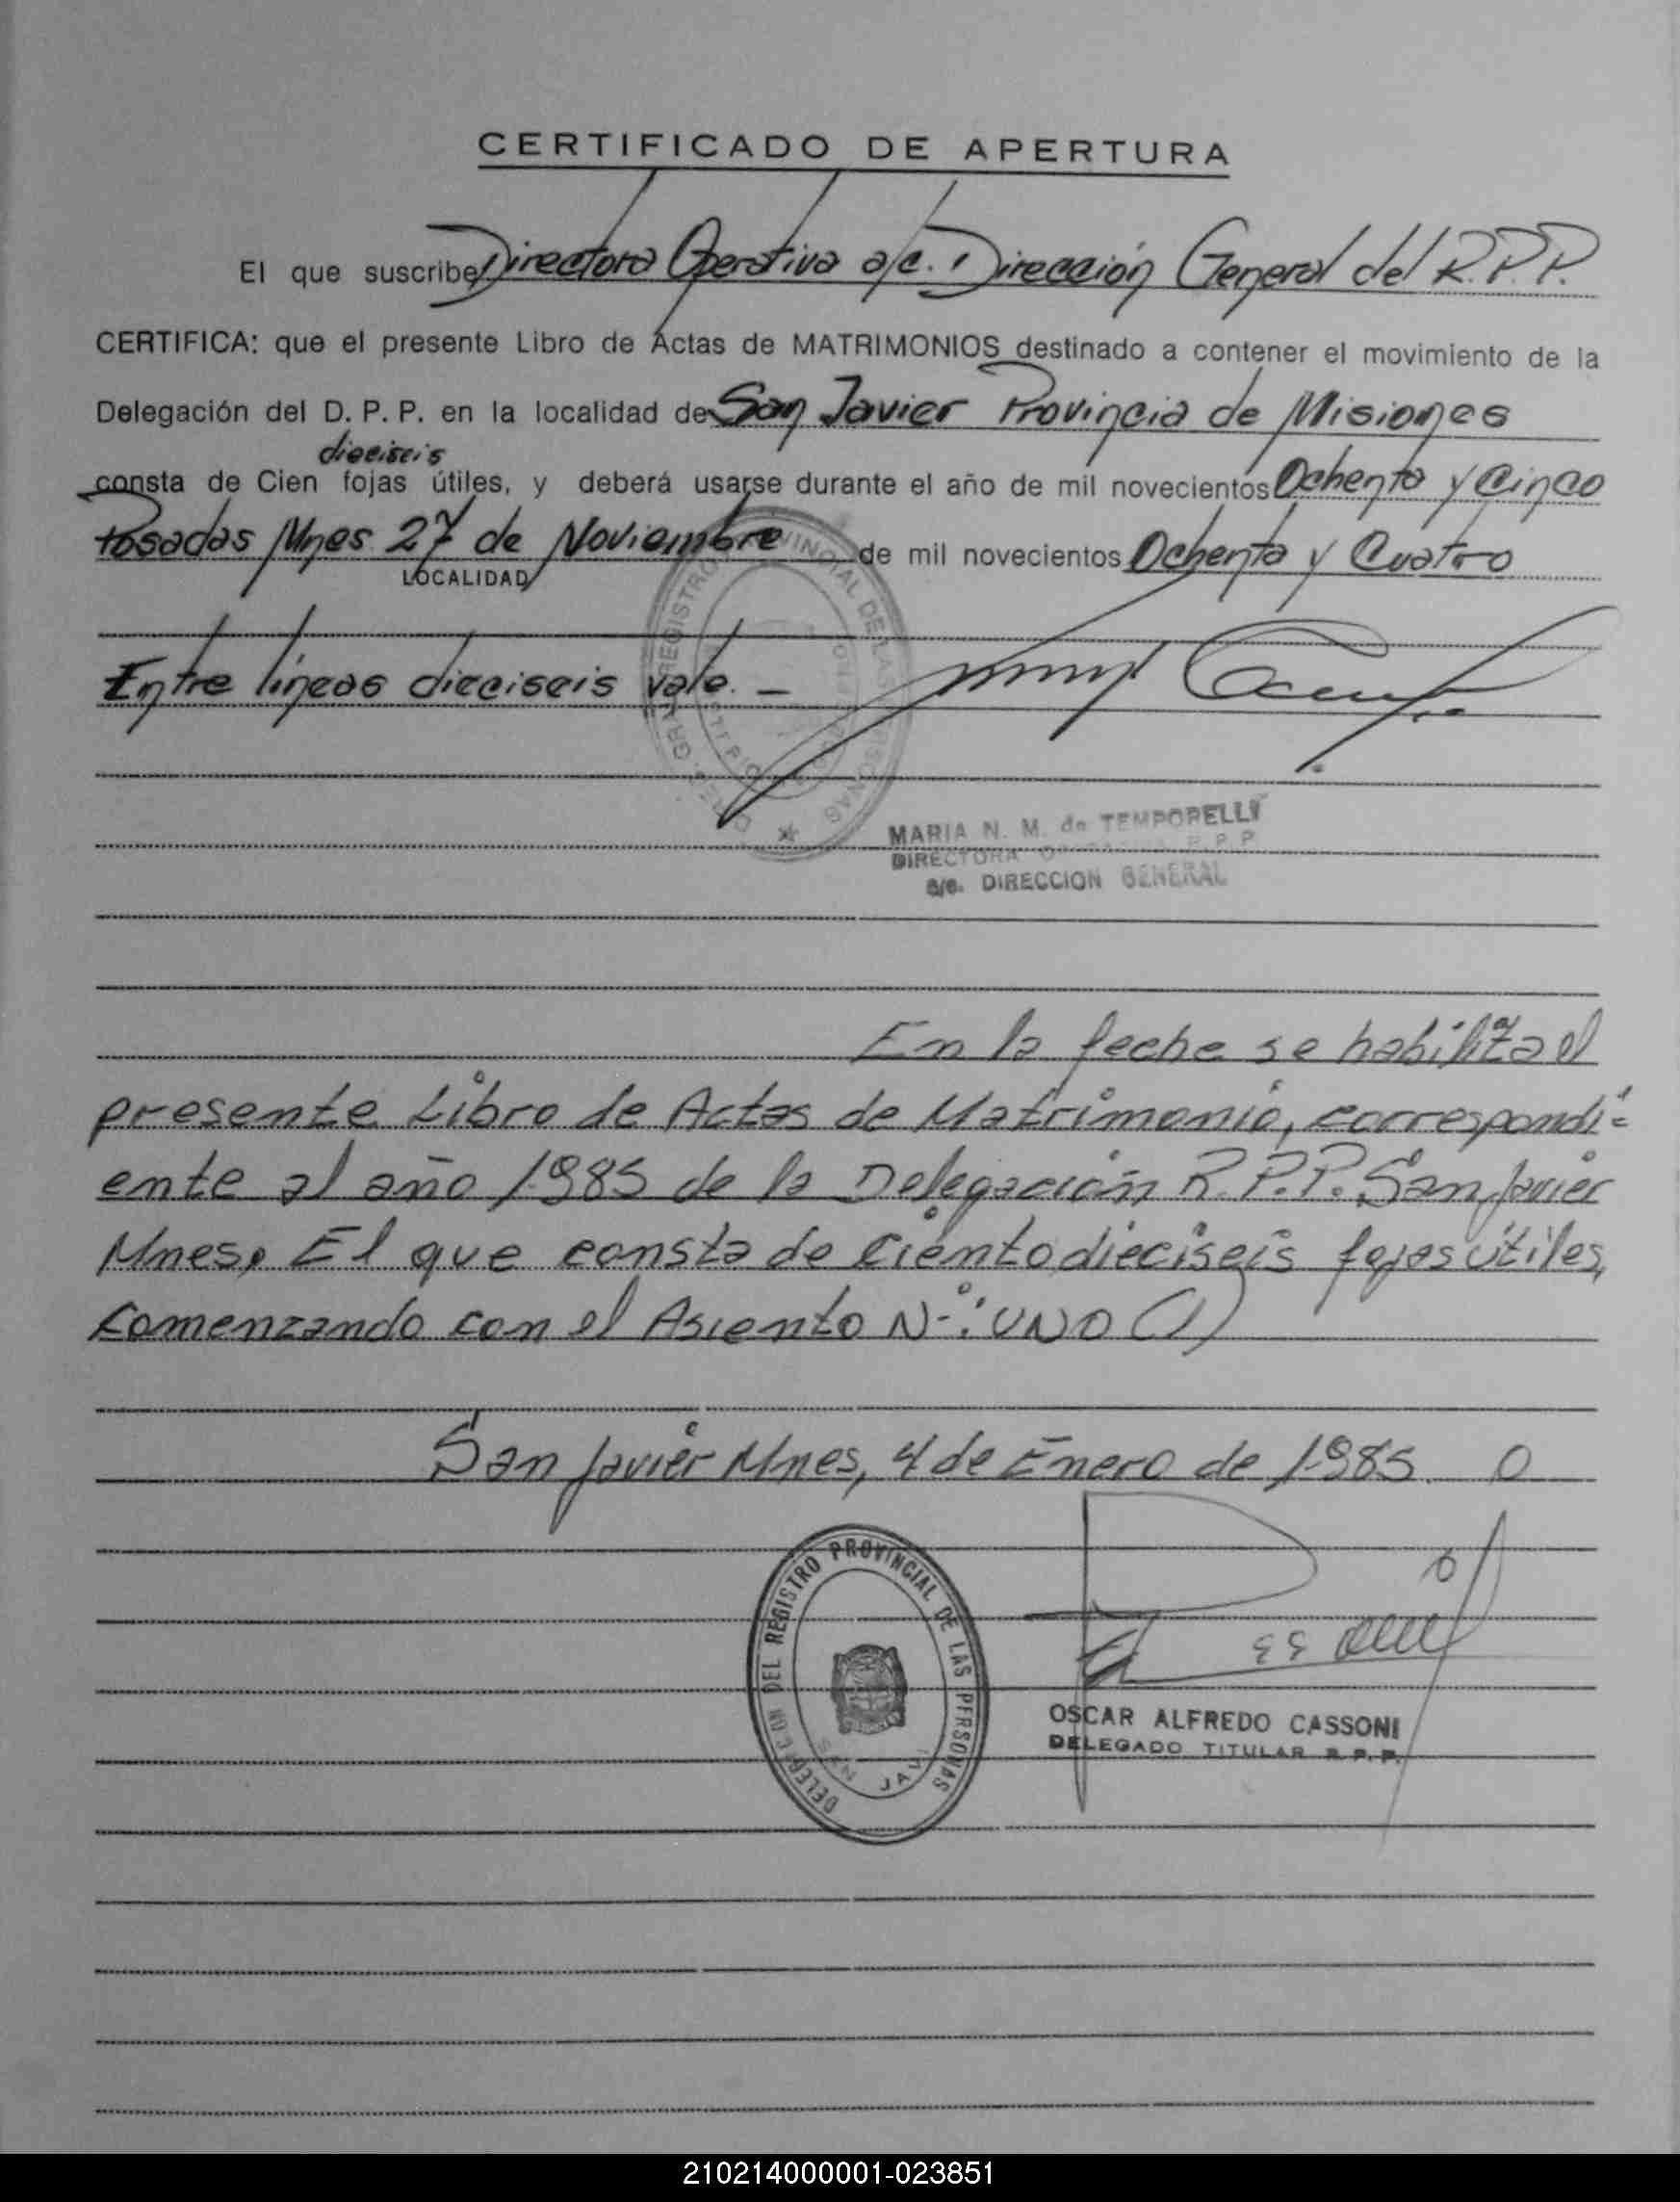 CERTIFICADO DE APERTURA
El que suscribe Directora Operativa a/c. Dirección General del R.P.P.
CERTIFICA: que el presente Libro de Actas de MATRIMONIOS destinado a contener el movimiento de la
Delegación del D. P. P. en la localidad de San Javier Provincia de Misiones
dieciseis
consta de Cien fojas útiles, y deberá usarse durante el año de mil novecientos Ochenta y Cinco
Posadas Mnes 27 de Noviembre de mil novecientos Ochenta y Cuatro
LOCALIDAD
Entre líneas dieciseis vale. —
MARIA N. M. de TEMPORELLI
DIRECTORA R. P. P.
a/c. DIRECCION GENERAL
En la fecha se habilita el
presente Libro de Actas de Matrimonio, correspondi-
ente al año 1985 de la Delegación R.P.P. San Javier
Mnes, El que consta de Ciento dieciseis fojas útiles,
Comenzando con el Asiento Nº: UNO (1)
San Javier Mnes, 4 de Enero de 1985.
DELEGACION DEL REGISTRO PROVINCIAL DE LAS PERSONAS
OSCAR ALFREDO CASSONI
DELEGADO TITULAR R. P. P.
210214000001-023851